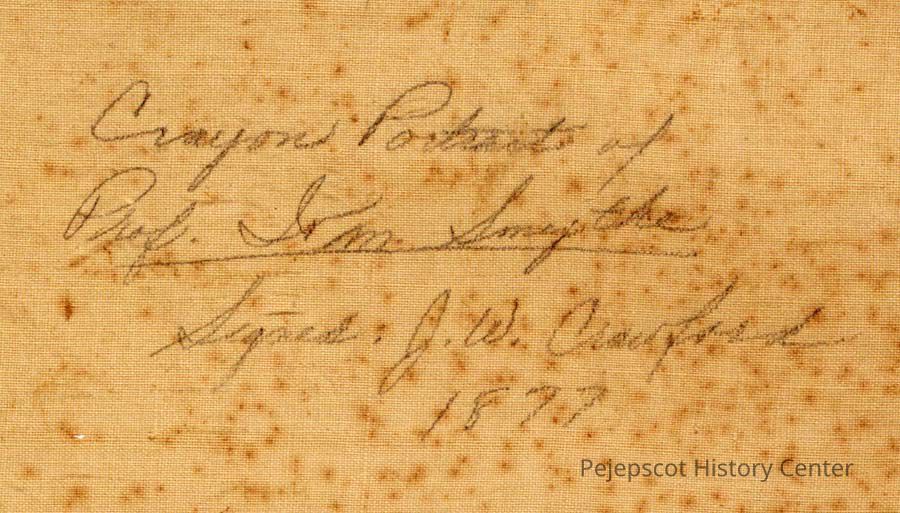 Crayon Portrait of
Prof. Wm Smythe
Signed. J. W. Crawford
1877
Pejepscot History Center